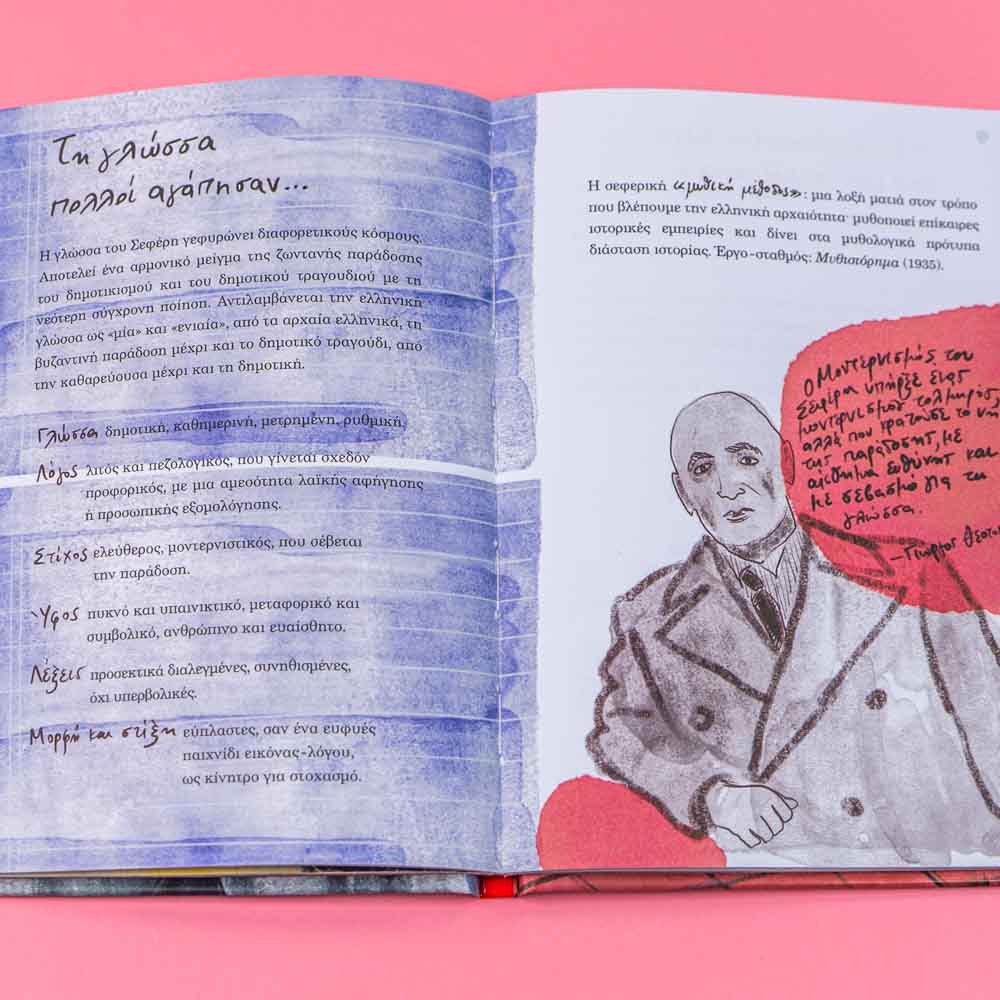 Τη γλώσσα
πολλοί αγάπησαν...
Η γλώσσα του Σεφέρη γεφυρώνει διαφορετικούς κόσμους.
Αποτελεί ένα αρμονικό μείγμα της ζωντανής παράδοσης
του δημοτικισμού και του δημοτικού τραγουδιού με τη
νεότερη σύγχρονη ποίηση. Αντιλαμβάνεται την ελληνική
γλώσσα ως «μία» και «ενιαία», από τα αρχαία ελληνικά, τη
βυζαντινή παράδοση μέχρι και το δημοτικό τραγούδι, από
την καθαρεύουσα μέχρι και τη δημοτική.
Γλώσσα δημοτική, καθημερινή, μετρημένη, ρυθμική.
Λόγος λιτός και πεζολογικός, που γίνεται σχεδόν
προφορικός, με μια αμεσότητα λαϊκής αφήγησης
ή προσωπικής εξομολόγησης.
Στίχος ελεύθερος, μοντερνιστικός, που σέβεται
την παράδοση.
Ύφος πυκνό και υπαινικτικό, μεταφορικό και
συμβολικό, ανθρώπινο και ευαίσθητο.
Λέξεις προσεκτικά διαλεγμένες, συνηθισμένες,
όχι υπερβολικές.
Μορφή και στίξη εύπλαστες, σαν ένα ευφυές
παιχνίδι εικόνας-λόγου,
ως κίνητρο για στοχασμό.
Η σεφερική «μυθική μέθοδος»: μια λοξή ματιά στον τρόπο
που βλέπουμε την ελληνική αρχαιότητα· μυθοποιεί επίκαιρες
ιστορικές εμπειρίες και δίνει στα μυθολογικά πρότυπα
διάσταση ιστορίας. Έργο-σταθμός: Μυθιστόρημα (1935).
Ο Μοντερνισμός του
Σεφέρη υπήρξε ένας
μοντερνισμός τολμηρός,
αλλά που κρατούσε το νήμα
της παράδοσης, με
αίσθημα ευθύνης και
με σεβασμό για τη
γλώσσα.
—Γιώργος